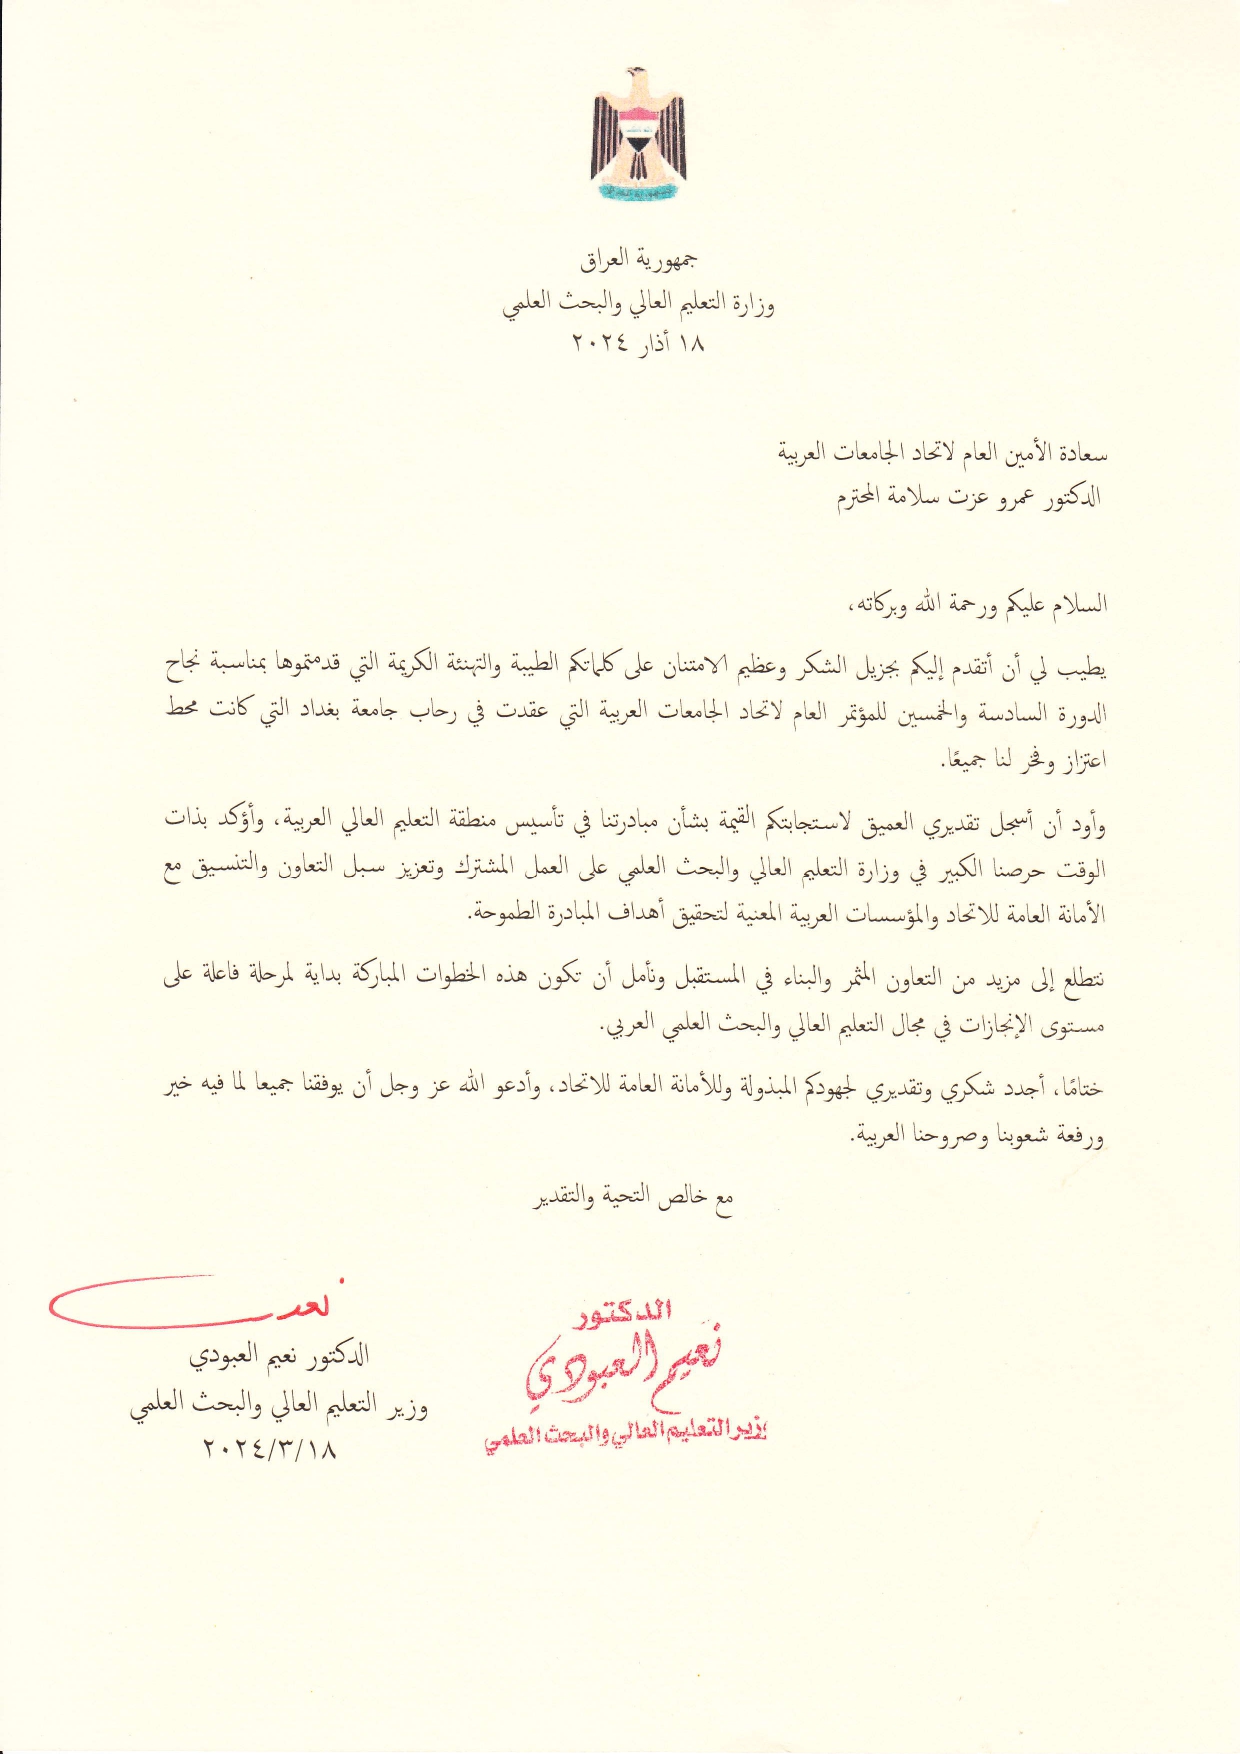 جمهورية العراق
وزارة التعليم العالي والبحث العلمي
١٨ أذار ٢٠٢٤
سعادة الأمين العام لاتحاد الجامعات العربية
الدكتور عمرو عزت سلامة المحترم
السلام عليكم ورحمة الله وبركاته،
يطيب لي أن أتقدم إليكم بجزيل الشكر وعظيم الامتنان على كلماتكم الطيبة والتهنئة الكريمة التي قدمتموها بمناسبة نجاح
الدورة السادسة والخمسين للمؤتمر العام لاتحاد الجامعات العربية التي عقدت في رحاب جامعة بغداد التي كانت محط
اعتزاز وفخر لنا جميعًا.
وأود أن أسجل تقديري العميق لاستجابتكم القيمة بشأن مبادرتنا في تأسيس منطقة التعليم العالي العربية، وأؤكد بذات
الوقت حرصنا الكبير في وزارة التعليم العالي والبحث العلمي على العمل المشترك وتعزيز سبل التعاون والتنسيق مع
الأمانة العامة للاتحاد والمؤسسات العربية المعنية لتحقيق أهداف المبادرة الطموحة.
نتطلع إلى مزيد من التعاون المثمر والبناء في المستقبل ونأمل أن تكون هذه الخطوات المباركة بداية لمرحلة فاعلة على
مستوى الإنجازات في مجال التعليم العالي والبحث العلمي العربي.
ختامًا، أجدد شكري وتقديري لجهودكم المبذولة وللأمانة العامة للاتحاد، وأدعو الله عز وجل أن يوفقنا جميعا لما فيه خير
ورفعة شعوبنا وصروحنا العربية.
مع خالص التحية والتقدير
الدكتور
نعيم العبودي
وزير التعليم العالي والبحث العلمي
الدكتور نعيم العبودي
وزير التعليم العالي والبحث العلمي
٢٠٢٤/٣/١٨